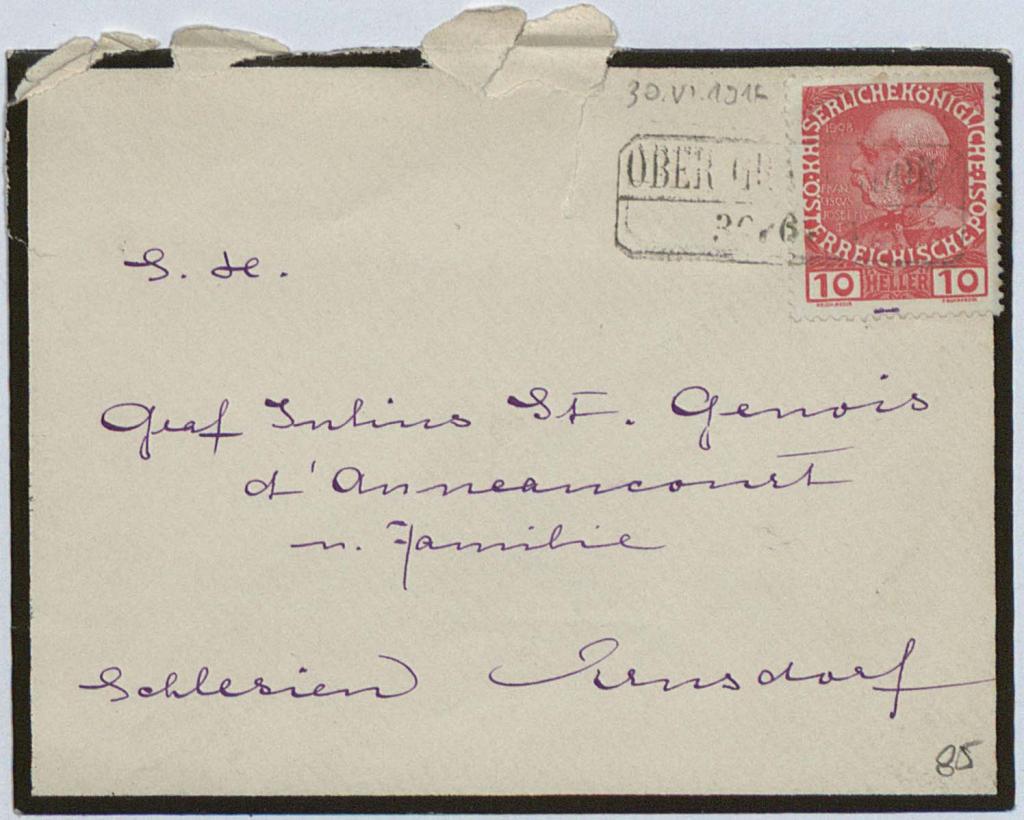 30.VI.191
OBER
KAISERLICHE KÖNIGLICHE ÖSTERREICHISCHE POST
1908
FRAN
CISCVS
JOSEPH
10 HELLER 10
S. H.
Graf Julius St. Genois
d'Anneaucourt
u. Familie
Schlesien Ernsdorf
85